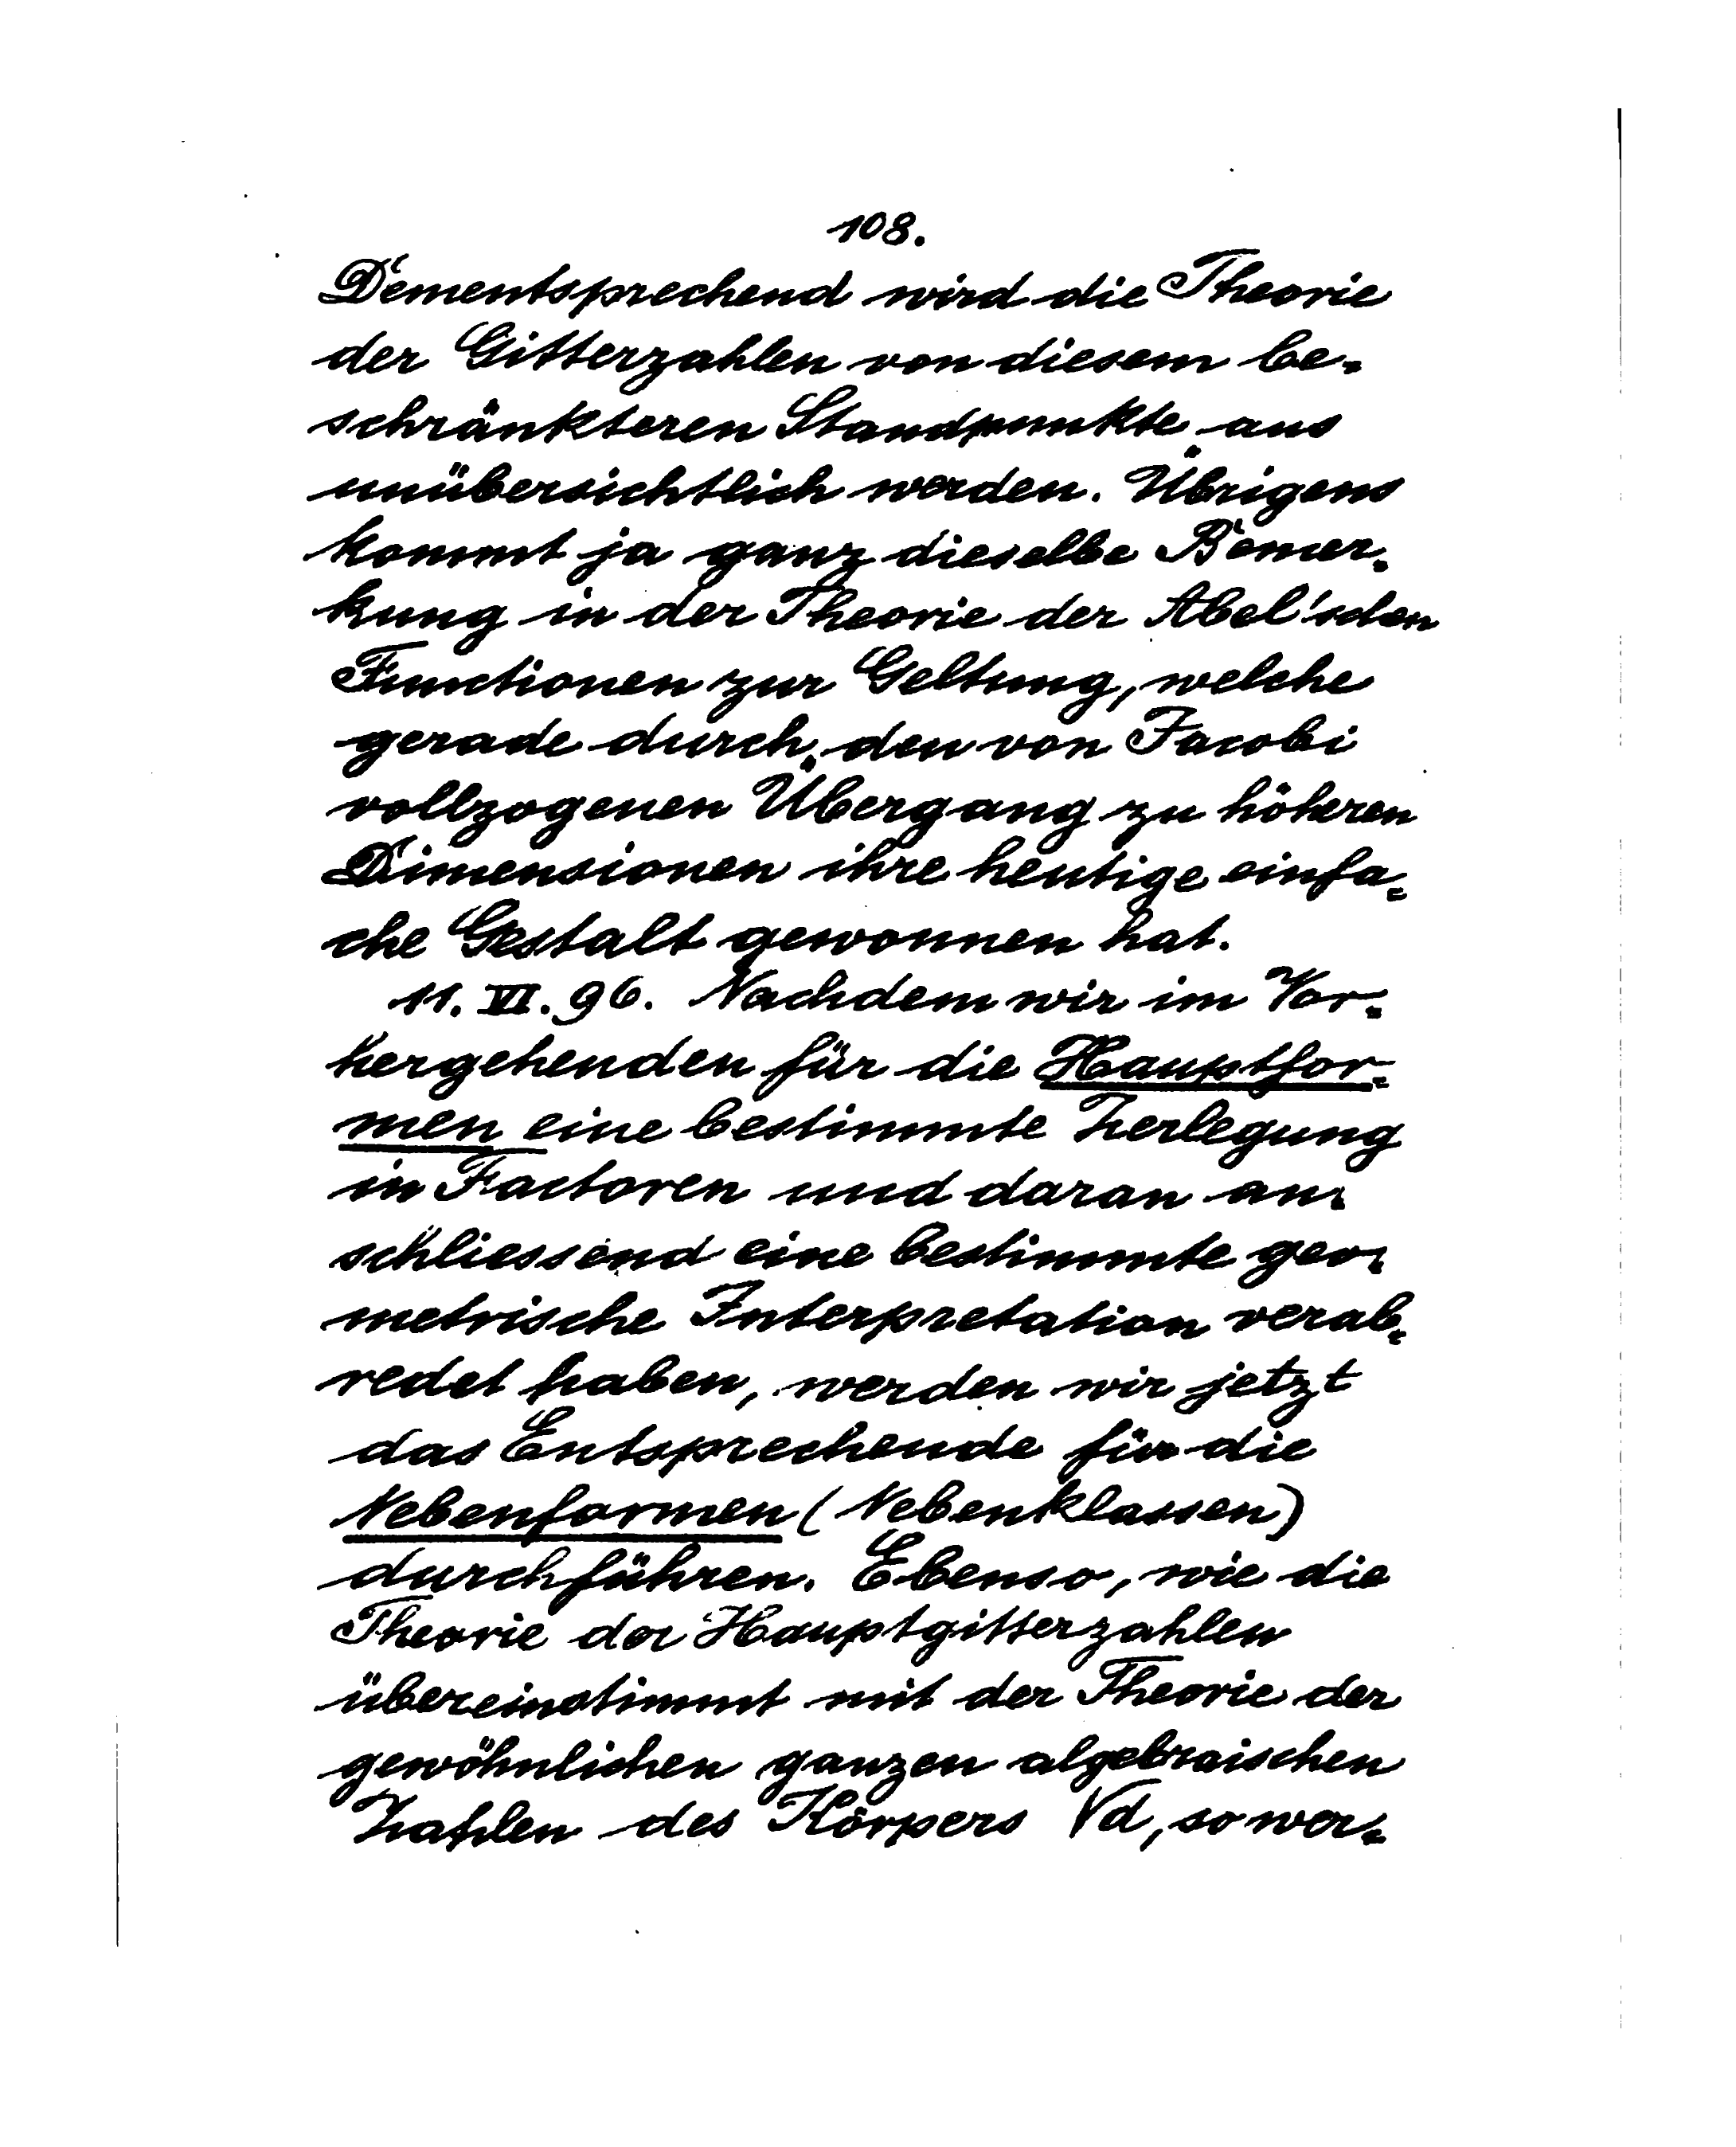 108.
Dementsprechend wird die Theorie
der Gitterzahlen von diesem be-
schränkteren Standpunkte aus
unübersichtlich werden. Übrigens
kommt ja ganz dieselbe Bemer-
kung in der Theorie der Abel'schen
Functionen zur Geltung, welche
gerade durch den von Jacobi
vollzogenen Übergang zu höheren
Dimensionen ihre heutige einfa-
che Gestalt gewonnen hat.
11. VI. 96. Nachdem wir im Vor-
hergehenden für die Hauptfor-
men eine bestimmte Zerlegung
in Factoren und daran an-
schliessend eine bestimmte geo-
metrische Interpretation verab-
redet haben, werden wir jetzt
das Entsprechende für die
Nebenformen (Nebenklassen)
durchführen. Ebenso, wie die
Theorie der Hauptgitterzahlen
übereinstimmt mit der Theorie der
gewöhnlichen ganzen algebraischen
Zahlen des Körpers √d, so wer-